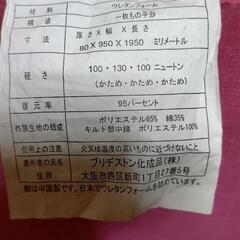 材料 ウレタンフォーム
構造 一枚もの平形
寸法 厚さ×幅×長さ
80×950×1950 ミリメートル
硬さ 100・130・100 ニュートン
(かため・かため・かため)
復元率 95パーセント
外装生地の組成 ポリエステル65% 綿35%
キルト部中綿 ポリエステル100%
使用上の注意 火又は温度の高いものに近づけないこと
表示者の氏名 ブリヂストン化成品(株)
住所 大阪市西区新町1丁目27番5号
側は中国製です。日本でウレタンフォームを詰めています。